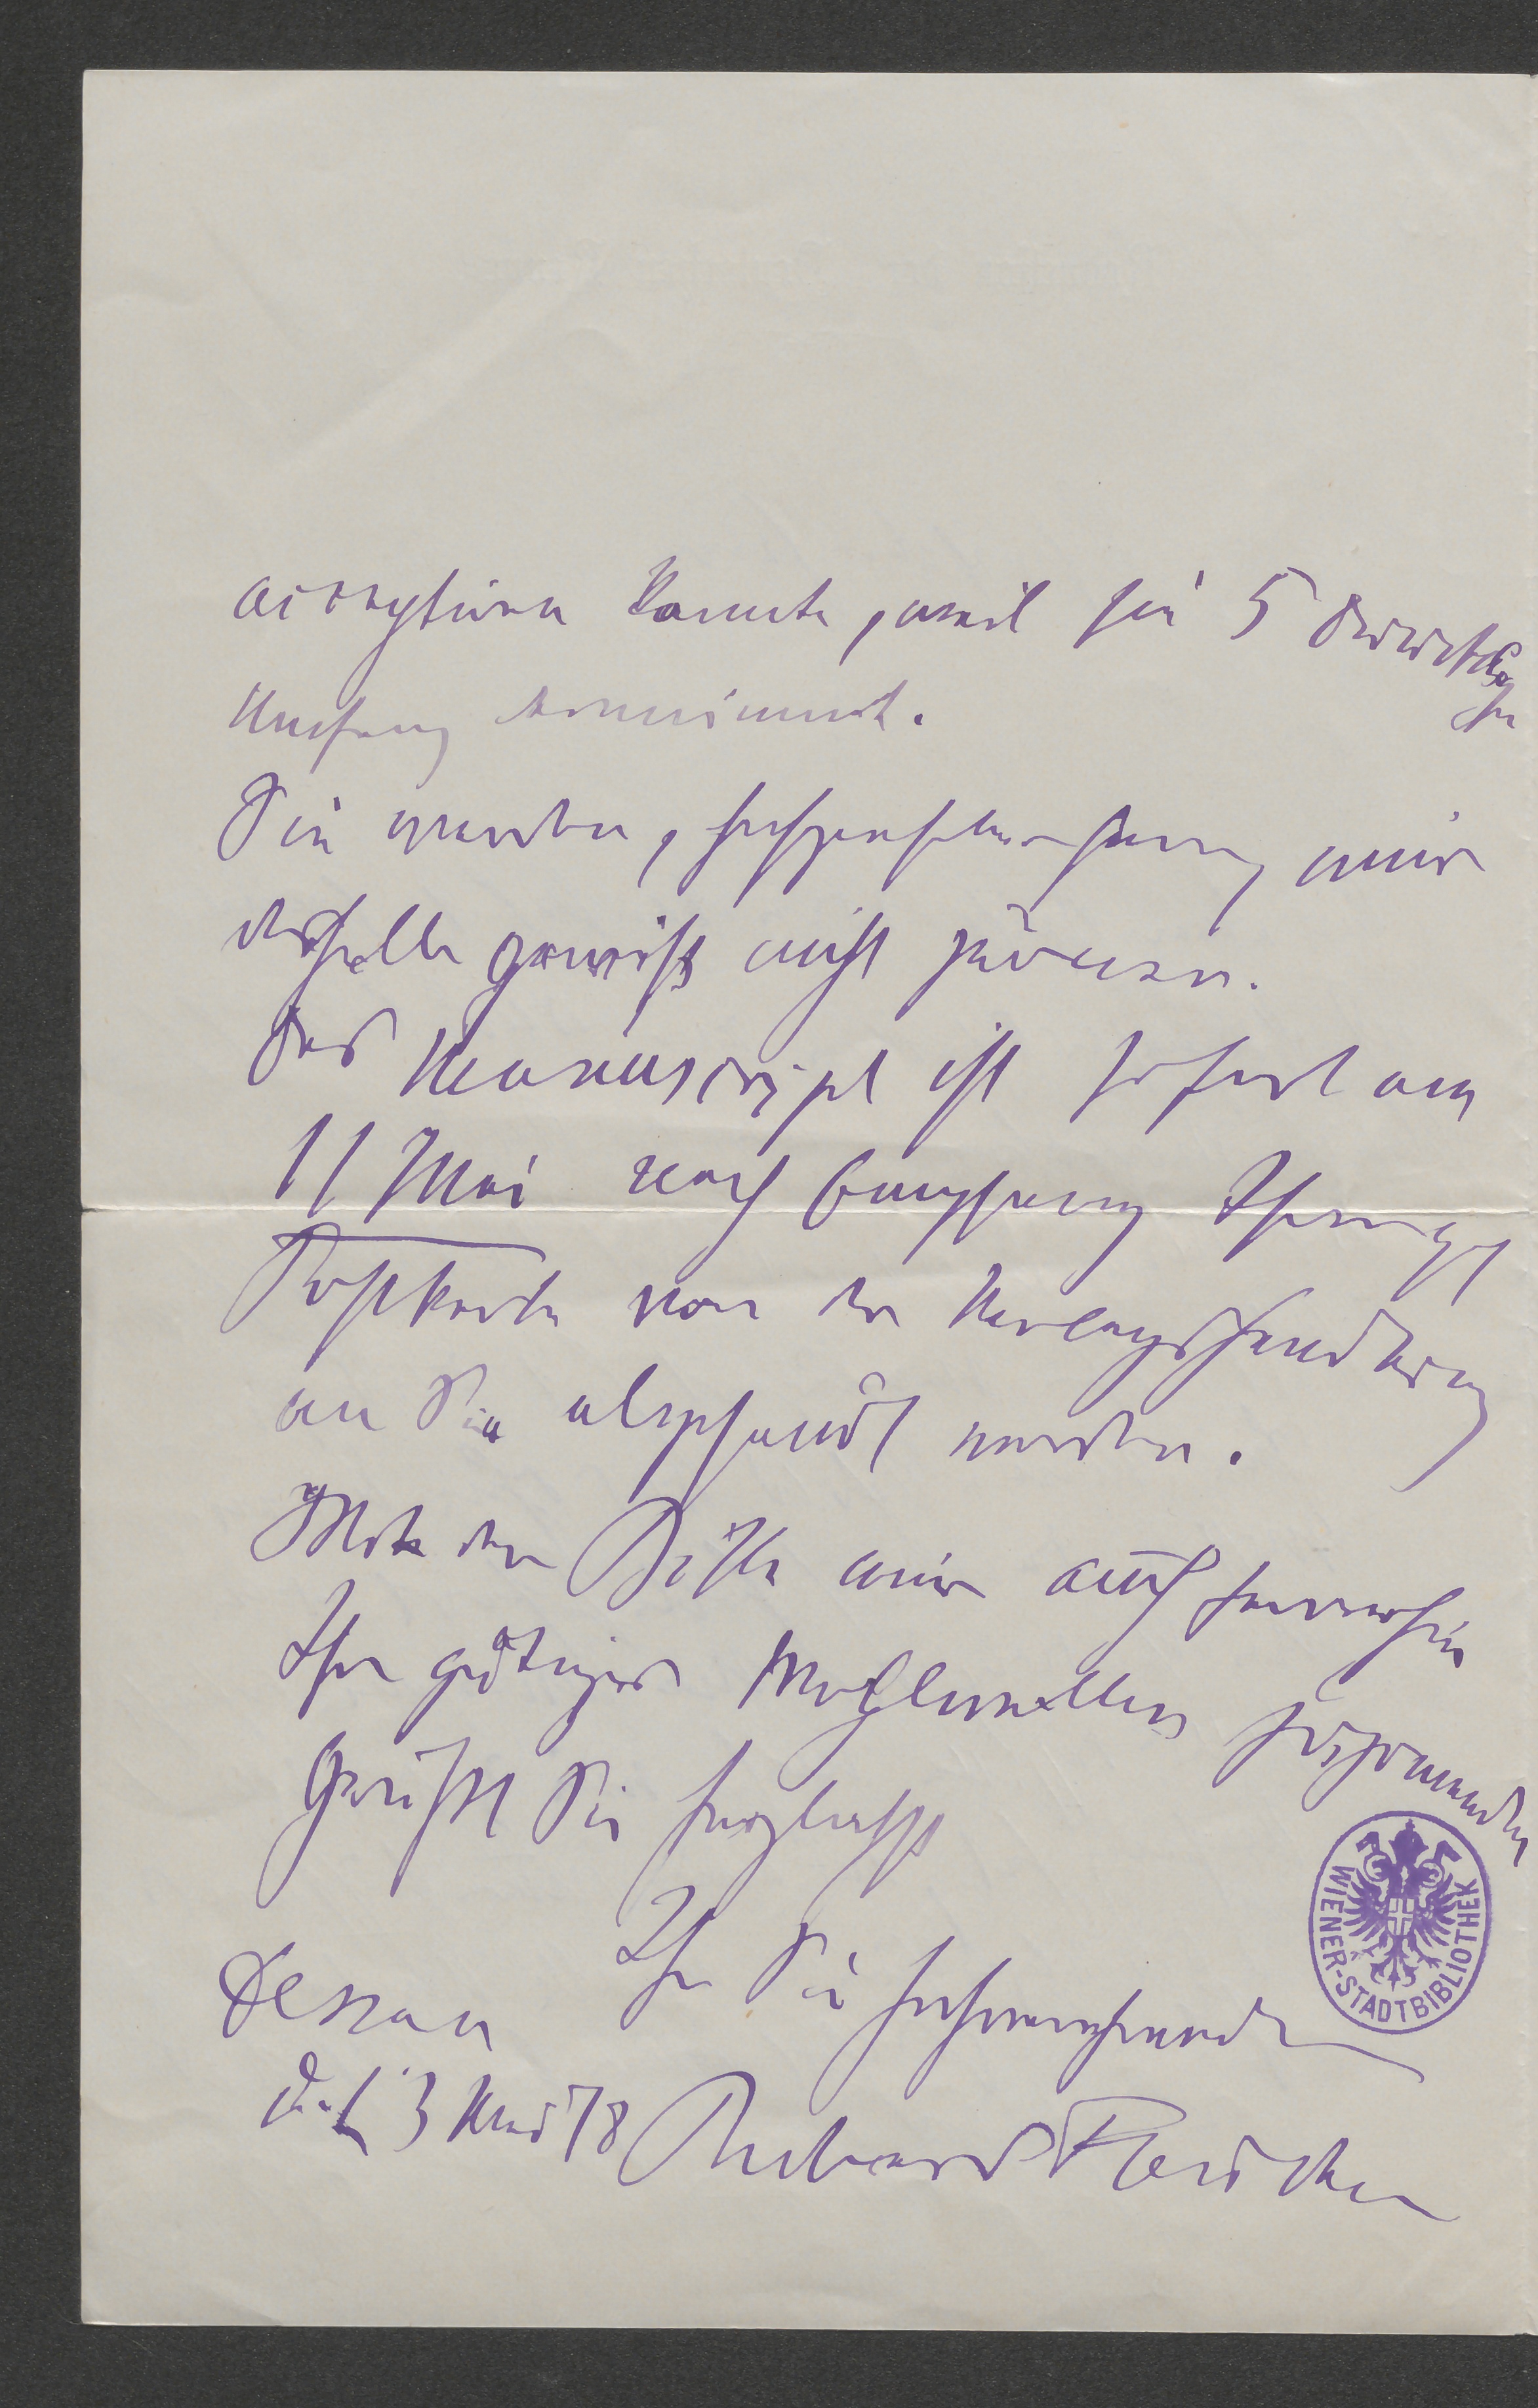 acceptiren konnte, weil sie 5 Druckbogen
Umfang einnimmt.
Sie werden, hochzuverehrender, mir
deshalb gewiß nicht zürnen.
Das Manuscript ist sofort am
11 Mai nach Empfang Ihrer
Postkarte von der Verlagshandlung
an Sie abgesandt worden.
Mit der Bitte mir auch fernerhin
Ihr gütiges Wohlwollen zuzuwenden
Grüßt Sie herzlichst
Ihr Sie hochverehrender
Dessau
d. 13 Mai 78 Richard Fleischer
WIENER-STADTBIBLIOTHEK